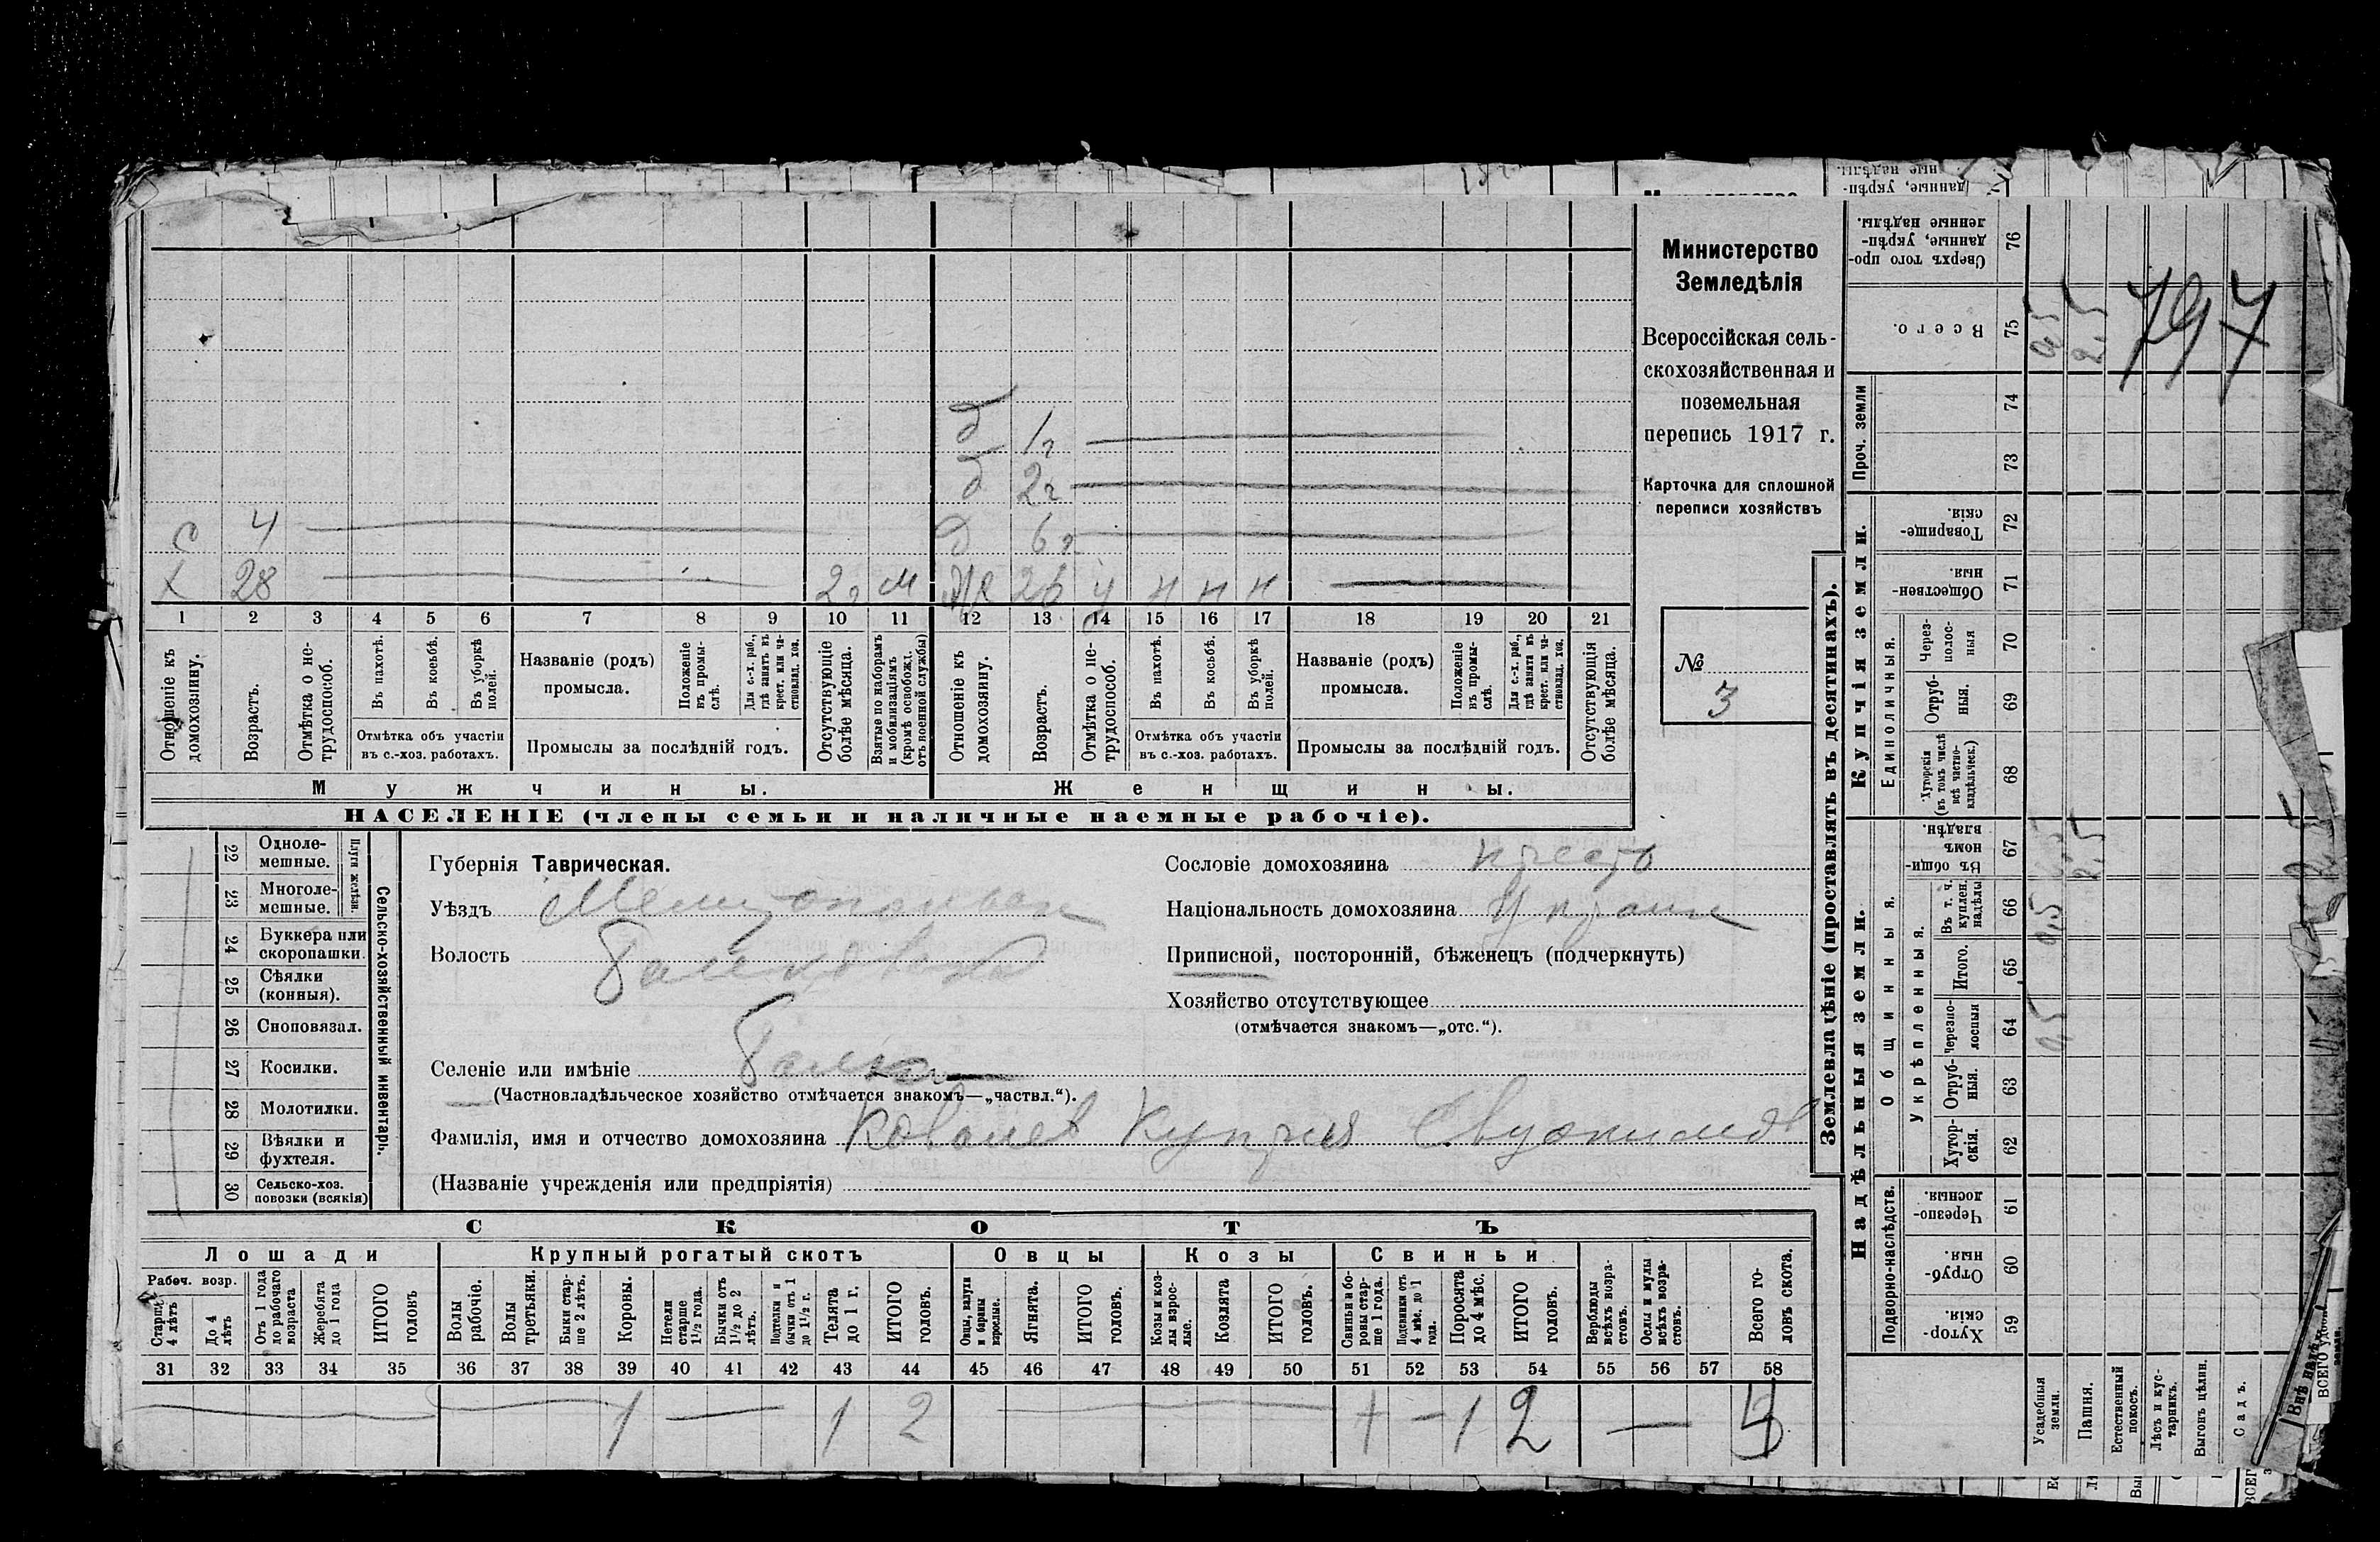 Министерство
Земледѣлія
Всероссійская сель-
скохозяйственная и
поземельная
перепись 1917 г.
Карточка для сплошной
переписи хозяйствъ
№
3
д 1 г
д 2 г
с 4 д 6 г
х 28 2 г м ж 26 у н н н
1 2 3 4 5 6 7 8 9 10 11 12 13 14 15 16 17 18 19 20 21
Отношеніе къ домохозяину.
Возрастъ.
Отмѣтка о не-трудоспособ.
Въ пахотѣ.
Въ косьбѣ.
Въ уборкѣ полей.
Отмѣтка объ участіи
въ с.-хоз. работахъ.
Названіе (родъ)
промысла.
Положеніе въ промы-слѣ.
Для с.-х. раб., гдѣ занятъ въ крест. или ча-стновлад. хоз.
Промыслы за послѣдній годъ.
Отсутствующіе болѣе мѣсяца.
Взятые по наборамъ и мобилизаціямъ (кромѣ освобожд. отъ военной службы)
Отношеніе къ домохозяину.
Возрастъ.
Отмѣтка о не-трудоспособ.
Въ пахотѣ.
Въ косьбѣ.
Въ уборкѣ полей.
Отмѣтка объ участіи
въ с.-хоз. работахъ.
Названіе (родъ)
промысла.
Положеніе въ промы-слѣ.
Для с.-х. раб., гдѣ занята въ крест. или ча-стновлад. хоз.
Промыслы за послѣдній годъ.
Отсутствующія болѣе мѣсяца.
Мужчины. Женщины.
НАСЕЛЕНІЕ (члены семьи и наличные наемные рабочіе).
Сельско-хозяйственный инвентарь.
Плуги желѣзн.
22 Одноле-мешные.
23 Многоле-мешные.
24 Буккера или скоропашки.
25 Сѣялки (конныя).
26 Сноповязал.
27 Косилки.
28 Молотилки.
29 Вѣялки и фухтеля.
30 Сельско-хоз. повозки (всякія)
Губернія Таврическая.
Уѣздъ
Волость
Селеніе или имѣніе
(Частновладѣльческое хозяйство отмѣчается знакомъ—„частвл.“).
Фамилія, имя и отчество домохозяина Ковалев
(Названіе учрежденія или предпріятія)
Сословіе домохозяина крест
Національность домохозяина
Приписной, посторонній, бѣженецъ (подчеркнуть)
Хозяйство отсутствующее
(отмѣчается знакомъ—„отс.“).
СКОТЪ
Лошади Крупный рогатый скотъ Овцы Козы Свиньи
Рабоч. возр.
Старше 4 лѣтъ
До 4 лѣтъ
Отъ 1 года до рабочаго возраста
Жеребята до 1 года
ИТОГО головъ
Волы рабочіе.
Волы третьяки.
Быки стар-ше 2 лѣтъ.
Коровы.
Нетели старше 1½ года.
Бычки отъ 1½ до 2 лѣтъ.
Подтелки и бычки отъ 1 до 1½ г.
Телята до 1 г.
ИТОГО головъ.
Овцы, валухи и бараны взрослые.
Ягнята.
ИТОГО головъ.
Козы и коз-лы взрос-лые.
Козлята
ИТОГО головъ.
Свиньи и бо-ровы стар-ше 1 года.
Подсвинки отъ 4 мѣс. до 1 года.
Поросята до 4 мѣс.
ИТОГО головъ.
Верблюды всѣхъ возра-стовъ.
Ослы и мулы всѣхъ возра-стовъ.
Всего го-ловъ скота.
31 32 33 34 35 36 37 38 39 40 41 42 43 44 45 46 47 48 49 50 51 52 53 54 55 56 57 58
1 — 1 2 — — 1 2 —
Землевладѣніе (проставлять въ десятинахъ).
Надѣльныя земли. Купчія земли. Проч. земли
Подворно-наслѣдств.
Общинныя.
Укрѣпленныя.
Единоличныя.
Хутор-скія. 59
Отруб-ныя. 60
Черезпо-лосныя. 61
Хутор-скія. 62
Отруб-ныя. 63
Черезпо-лосныя 64
Итого. 65
Въ т. ч. куплен. надѣлы 66
Въ общин-номъ владѣн. 67
Хуторскія (въ томъ числѣ всѣ частно-владѣльческ.) 68
Отруб-ныя. 69
Через-полос-ныя 70
Обществен-ныя. 71
Товарище-скія. 72
73
74
Всего. 75
Сверхъ того про-данные, укрѣп-ленные надѣлы. 76
Усадебныя земли.
0,5 0,5 0,5
Пашня.
2,5 2,5
Естественный покосъ.
Лѣсъ и кус-тарникъ.
Выгонъ цѣлин.
Садъ.
797